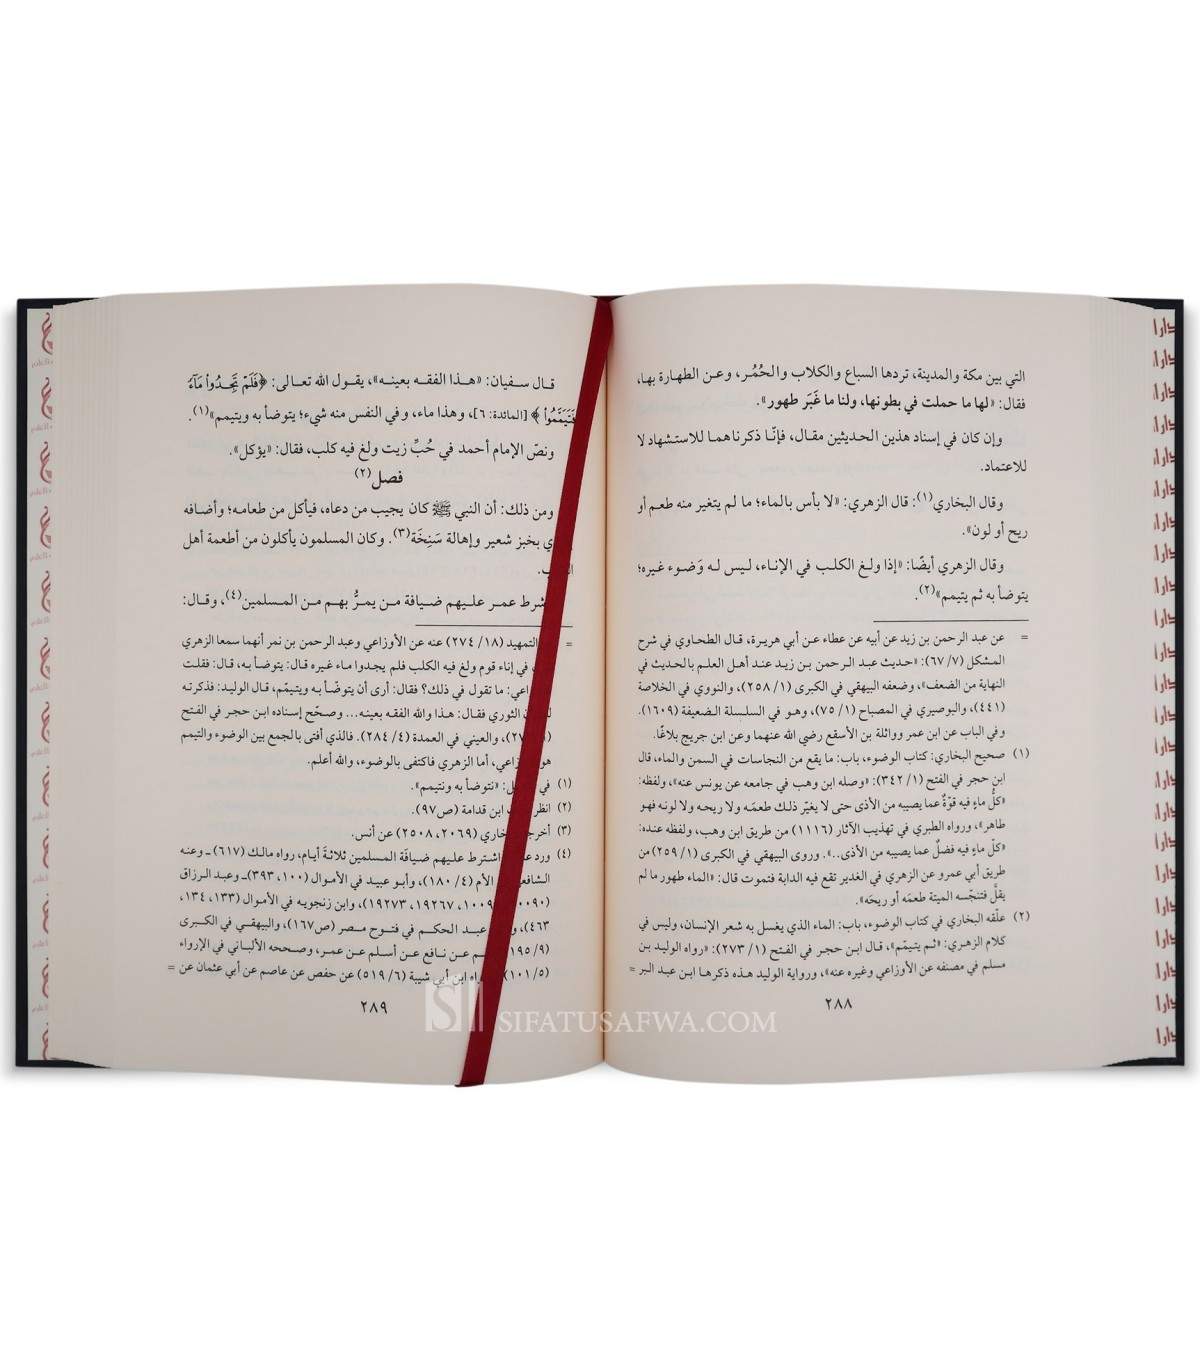 التي بين مكة والمدينة، تردها السباع والكلاب والحُمُر، وعن الطهارة بها،
فقال: «لها ما حملت في بطونها، ولنا ما غَبَر طهور».
وإن كان في إسناد هذين الحديثين مقال، فإنّا ذكرناهما للاستشهاد لا
للاعتماد.
وقال البخاري(١): قال الزهري: «لا بأس بالماء؛ ما لم يتغير منه طعم أو
ريح أو لون».
وقال الزهري أيضًا: «إذا ولغ الكلب في الإناء، ليس له وَضوء غيره؛
يتوضأ به ثم يتيمم»(٢).
= عن عبد الرحمن بن زيد عن أبيه عن عطاء عن أبي هريرة، قال الطحاوي في شرح
المشكل (٧/ ٦٧): «حديث عبد الرحمن بن زيد عند أهل العلم بالحديث في
النهاية من الضعف»، وضعفه البيهقي في الكبرى (١/ ٢٥٨)، والنووي في الخلاصة
(٤٤١)، والبوصيري في المصباح (١/ ٧٥)، وهو في السلسلة الضعيفة (١٦٠٩).
وفي الباب عن ابن عمر وواثلة بن الأسقع رضي الله عنهما وعن ابن جريج بلاغًا.
(١) صحيح البخاري: كتاب الوضوء، باب: ما يقع من النجاسات في السمن والماء، قال
ابن حجر في الفتح (١/ ٣٤٢): «وصله ابن وهب في جامعه عن يونس عنه»، ولفظه:
«كلُّ ماءٍ فيه قوّةٌ عما يصيبه من الأذى حتى لا يغيّر ذلك طعمَه ولا ريحه ولا لونه فهو
طاهر»، ورواه الطبري في تهذيب الآثار (١١١٦) من طريق ابن وهب، ولفظه عنده:
«كلّ ماءٍ فيه فضلٌ عما يصيبه من الأذى..». وروى البيهقي في الكبرى (١/ ٢٥٩) من
طريق أبي عمرو عن الزهري في الغدير تقع فيه الدابة فتموت قال: «الماء طهور ما لم
يقلَّ فتنجّسه الميتة طعمَه أو ريحَه».
(٢) علّقه البخاري في كتاب الوضوء، باب: الماء الذي يغسل به شعر الإنسان، وليس في
كلام الزهري: «ثم يتيمّم»، قال ابن حجر في الفتح (١/ ٢٧٣): «رواه الوليد بن
مسلم في مصنفه عن الأوزاعي وغيره عنه»، ورواية الوليد هذه ذكرها ابن عبد البر =
٢٨٨
قال سفيان: «هذا الفقه بعينه»، يقول الله تعالى: ﴿فَلَمْ تَجِدُوا۟ مَآءً
فَتَيَمَّمُوا۟﴾ [المائدة: ٦]، وهذا ماء، وفي النفس منه شيء؛ يتوضأ به ويتيمم»(١).
ونصّ الإمام أحمد في حُبِّ زيت ولغ فيه كلب، فقال: «يؤكل».
فصل(٢)
ومن ذلك: أن النبي ﷺ كان يجيب من دعاه، فيأكل من طعامه؛ وأضافه
بخبز شعير وإهالة سَنِخَة(٣). وكان المسلمون يأكلون من أطعمة أهل
شرط عمر عليهم ضيافة من يمرُّ بهم من المسلمين(٤)، وقال:
= التمهيد (١٨/ ٢٧٤) عنه عن الأوزاعي وعبد الرحمن بن نمر أنهما سمعا الزهري
في إناء قوم ولغ فيه الكلب فلم يجدوا ماء غيره قال: يتوضأ به، قال: فقلت
ما تقول في ذلك؟ فقال: أرى أن يتوضّأ به ويتيمّم، قال الوليد: فذكرته
الثوري فقال: هذا والله الفقه بعينه... وصحّح إسناده ابن حجر في الفتح
والعيني في العمدة (٤/ ٢٨٤). فالذي أفتى بالجمع بين الوضوء والتيمم
هو أما الزهري فاكتفى بالوضوء، والله أعلم.
(١) في «نتوضأ به ونتيمم».
(٢) انظر ابن قدامة (ص٩٧).
(٣) (٢٠٦٩، ٢٥٠٨) عن أنس.
(٤) ورد اشترط عليهم ضيافة المسلمين ثلاثةَ أيام، رواه مالك (٦١٧) ـ وعنه
الأم (٤/ ١٨٠)، وأبو عبيد في الأموال (١٠٠، ٣٩٣)ـ وعبد الرزاق
١٩٢٦٧، ١٩٢٧٣)، وابن زنجويه في الأموال (١٣٣، ١٣٤،
٤٦٣)، عبد الحكم في فتوح مصر (ص١٦٧)، والبيهقي في الكبرى
(٩/ ١٩٥) عن نافع عن أسلم عن عمر، وصححه الألباني في الإرواء
(٥/ ١٠١) ابن أبي شيبة (٦/ ٥١٩) عن حفص عن عاصم عن أبي عثمان عن =
٢٨٩
SIFATUSAFWA.COM